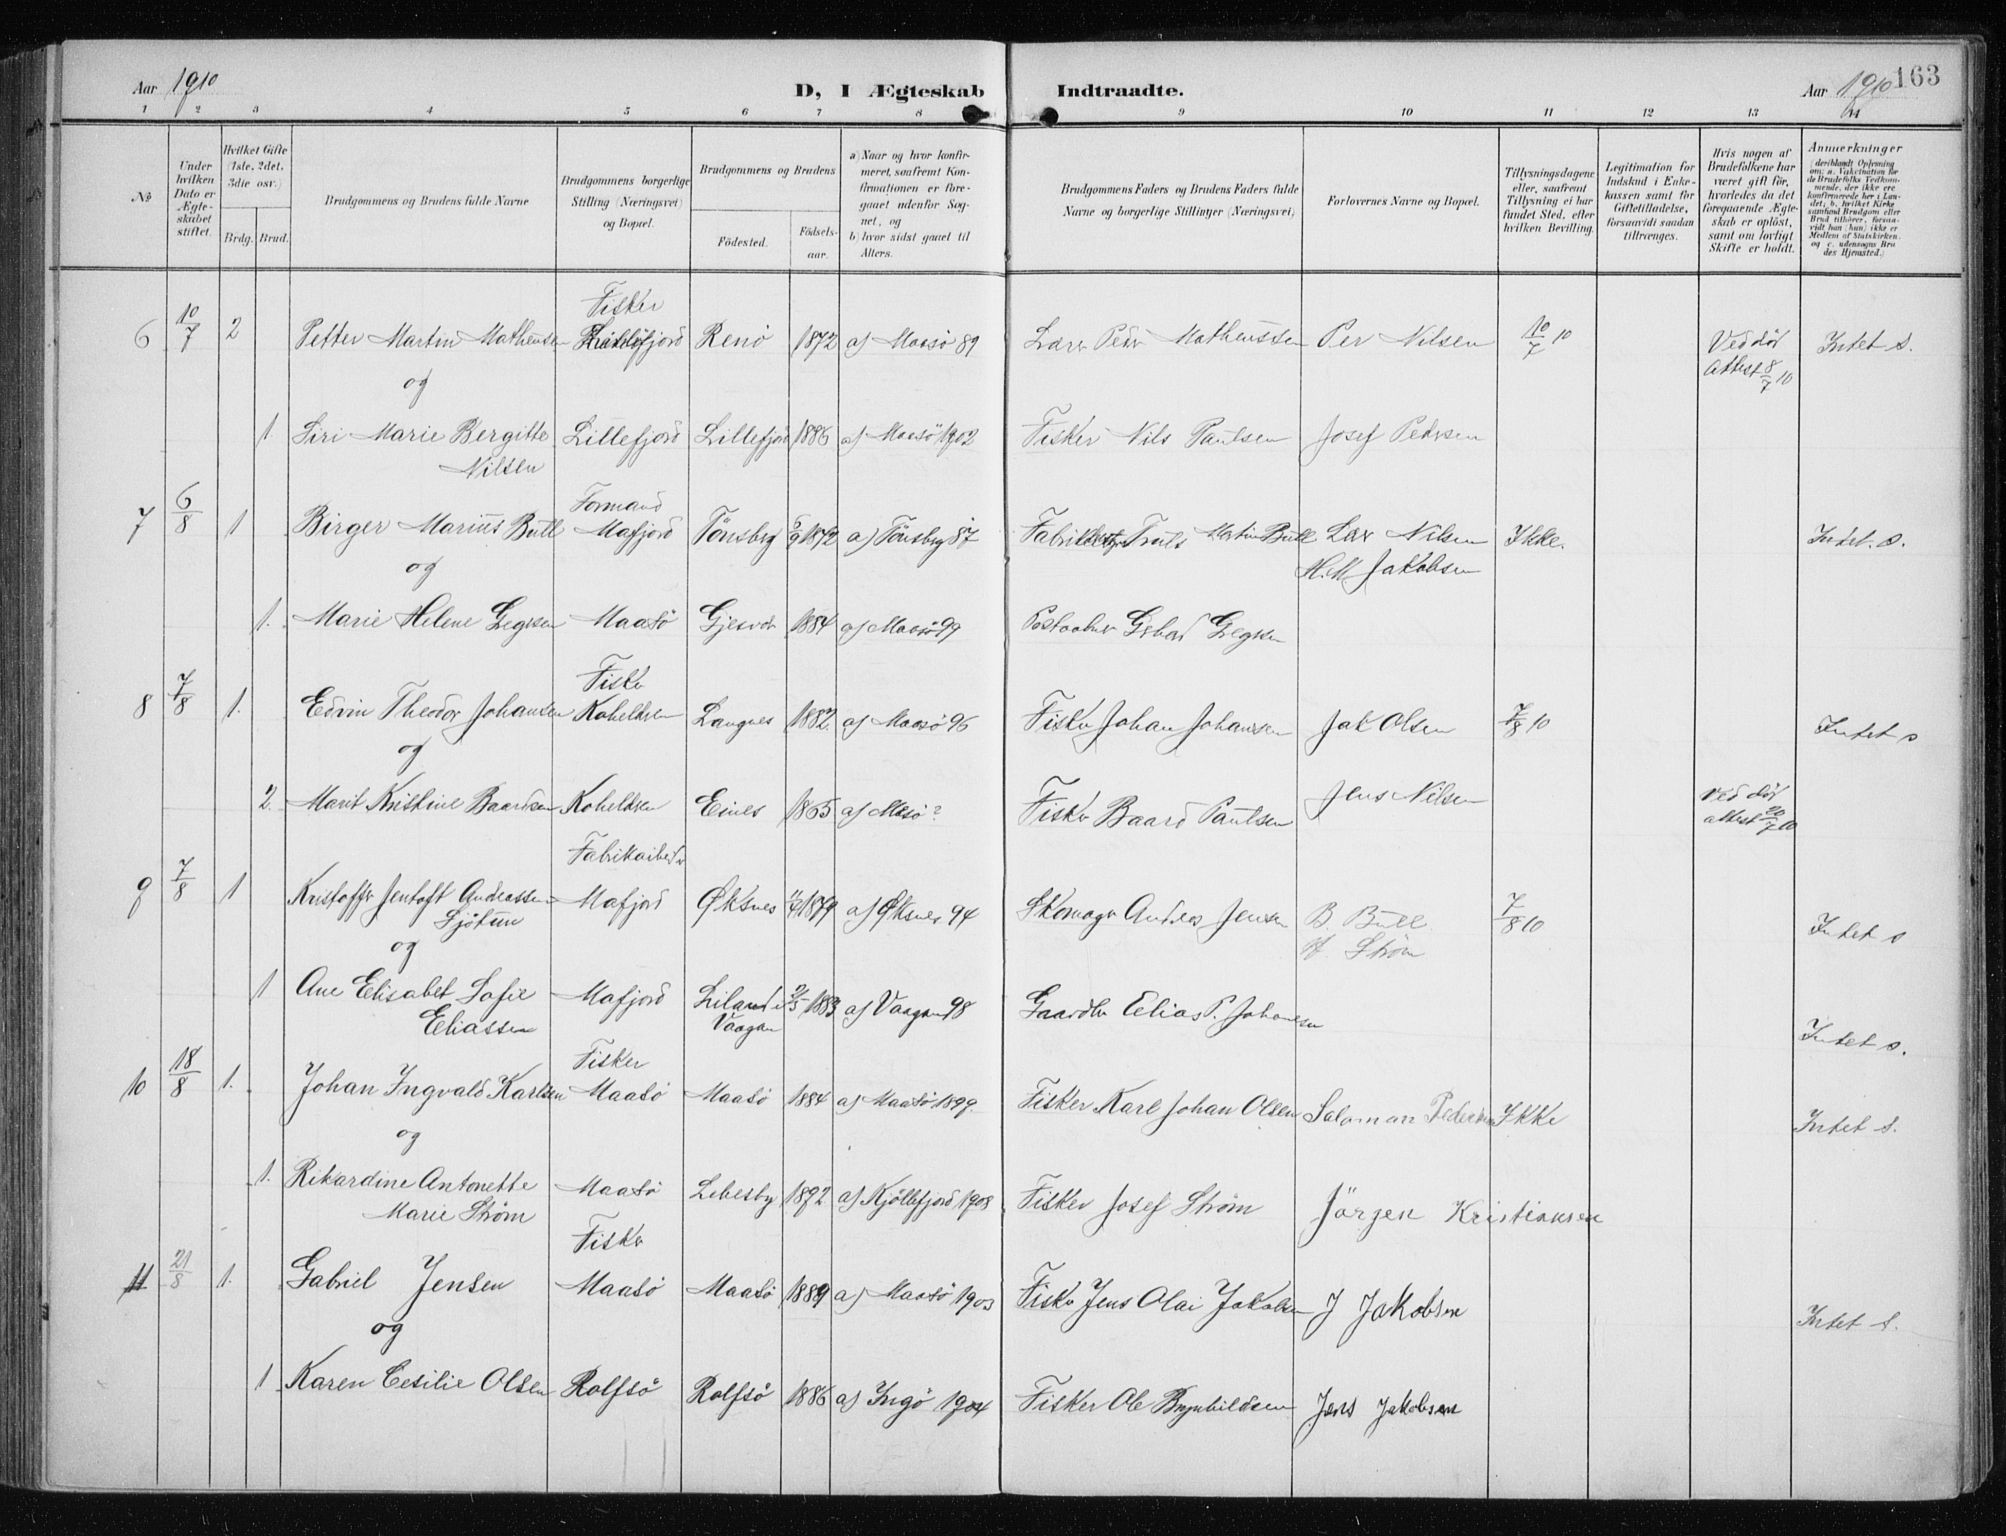 Aar 1910
D, I Ægteskab Indtraadte.
Aar 1910
163
1 2 3 4 5 6 7 8 9 10 11 12 13 14
No
Under hvilken Dato er Ægteskabet stiftet.
Hvilket Gifte (1ste, 2det, 3die osv.)
Brdg. Brud.
Brudgommens og Brudens fulde Navne
Brudgommens borgerlige Stilling (Næringsvei) og Bopæl.
Brudgommens og Brudens
Födested.
Födselsaar.
a) Naar og hvor konfirmeret, saafremt Konfirmationen er foregaaet udenfor Sognet, og
b) hvor sidst gaaet til Alters.
Brudgommens Faders og Brudens Faders fulde Navne og borgerlige Stillinger (Næringsvei)
Forlovernes Navne og Bopæl.
Tillysningsdagene eller, saafremt Tillysning ei har fundet Sted, efter hvilken Bevilling.
Legitimation for Indskud i Enkekassen samt for Giftetilladelse, forsaavidt saadan tiltrænges.
Hvis nogen af Brudefolkene har været gift för, hvorledes da det foregaaende Ægteskab er oplöst, samt om lovligt Skifte er holdt.
Anmerkninger
(deriblandt Oplysning om: a. Vaksination for de Brudefolks Vedkommende, der ikke ere konfirmerede her i Landet; b. hvilket Kirkesamfund Brudgom eller Brud tilhörer, forsaavidt han (hun) ikke er Medlem af Statskirken, og c. udensogns Brudes Hjemsted.)
Fisker
6 10/7 2 Petter Martin Matheusen Renö 1872 a) Maasö 89 Lærer Peder Matheussen Per Nilsen 10/7 10 Ved död Attest 8/7 10 Intet s.
og
1. Siri Marie Bergitte Nilsen Lillefjord Lillefjord 1886 a) Maasö 1902 Fisker Nils Paulsen Josef Pedersen
Formand
7 6/8 1 Birger Marius Bull Mafjord Tönsberg 5/9 1872 a) Tönsberg 87 Truls Martin Bull Lær Nilsen Ikke. Intet. s.
H. M. Jakobsen
og
1. Marie Helene Gegrsen Maasö Gjesvær 1884 a) Maasö 99 Postaabner Gerhard Gegrsen
Fisker
8 7/8 1. Edvin Theodor Johansen Kobeldsen Langnes 1882. a) Maasö 96 Fisker Johan Johansen Jak Olsen 7/8 10 Intet s
og
2. Marit Kristine Baardsen Kobeldsen Eines 1865 a) Masö? Fisker Baard Paulsen Jens Nilsen Ved död attest 20/7 10
Fabrikarbeider
9 7/8 1 Kristoffer Jentoft Andreassen Sjötun Mafjord Øksnes 1879 a) Øksnes 94 Skomager Andreas Jensen B. Bull 7/8 10 Intet s
H. Ström
og
1 Ane Elisabet Sofie Eliassen Mafjord Liland i Vaagan 2/5 1883 a) Vaagan 98 Gaardbr Elias P. Johansen
Intet s.
Fisker
10 18/8 1. Johan Ingvald Karlsen Maasö Maasö 1884 a) Maasö 1899. Fisker Karl Johan Olsen Salomon Pedersen Ikke Intet s.
og
1. Rikardine Antonette Marie Ström Maasö Lebesby 1892 a) Kjöllefjord 1908 Fisker Josef Ström Jörgen Kristiansen
Fisker
11 21/8 1. Gabriel Jensen Maasö Maasö 1889 a) Maasö 1903 Fisker Jens Olai Jakobsen J Jakobsen Intet s.
og
1 Karen Cesilie Olsen Rolfsö Rolfsö 1886 a) Ingö 1904 Fisker Ole Brynhildsen Jens Jakobsen